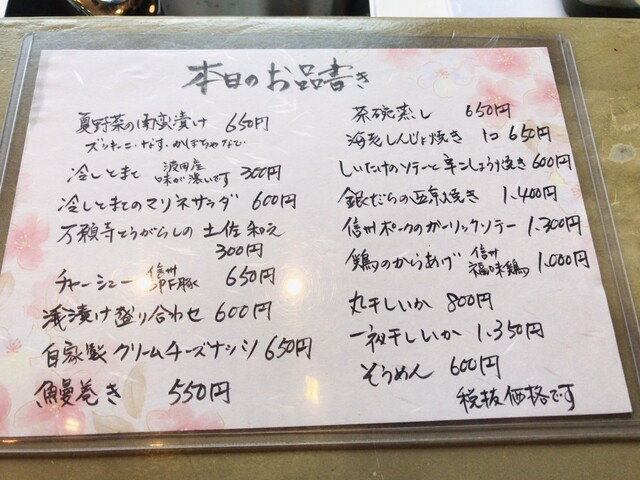 本日のお品書き
夏野菜の南蛮漬け 650円
ズッキーニ・なす・かぼちゃなど…
冷しとまと 波田産 味が濃いです 300円
冷しとまとのマリネサラダ 600円
万願寺とうがらしの土佐和え
300円
チャーシュー 信州SPF豚 650円
浅漬け盛り合わせ 600円
自家製クリームチーズナッシ 650円
鰻巻き 550円
茶碗蒸し 650円
海老しんじょ焼き 1コ 650円
しいたけのソテーと辛こしょう焼き 600円
銀だらの西京焼き 1.400円
信州ポークのガーリックソテー 1.300円
鶏のからあげ 信州福味鶏 1.000円
丸干しいか 800円
一夜干しいか 1.350円
そうめん 600円
税抜価格です